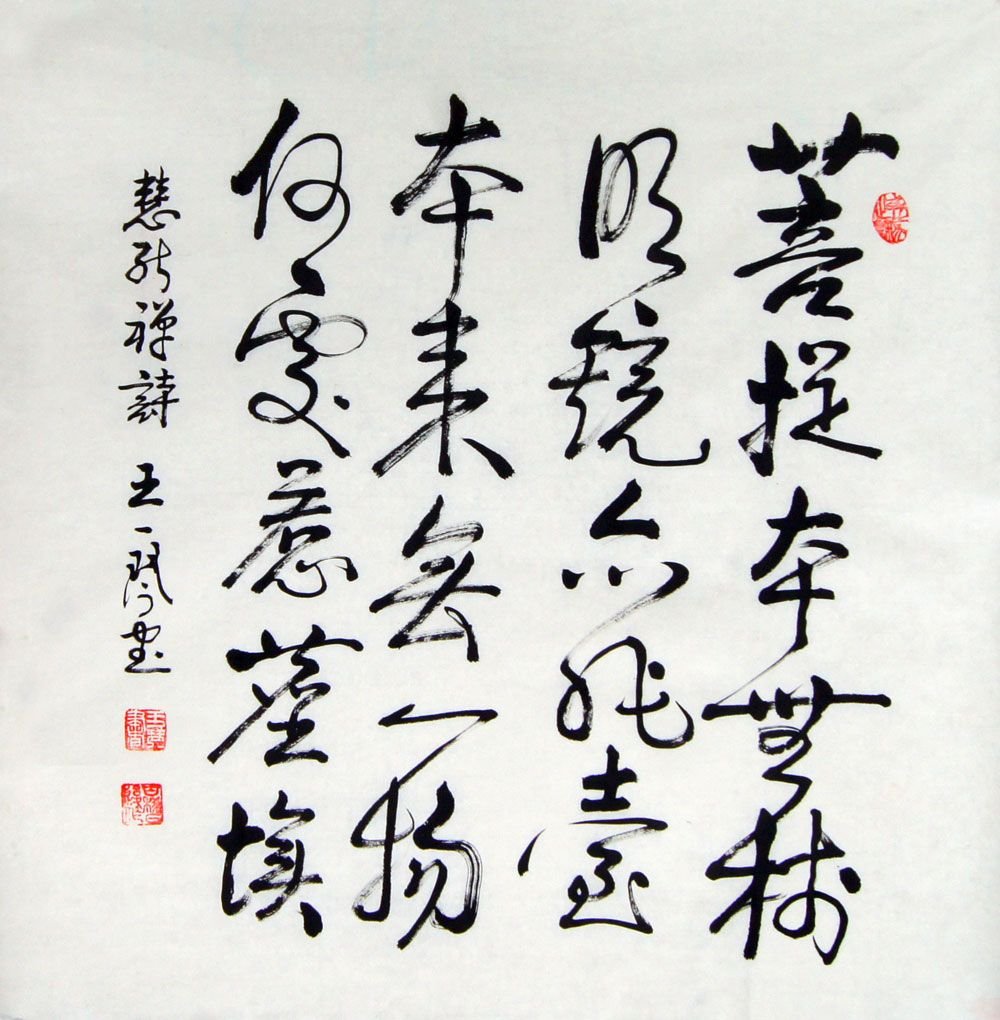 菩提本無樹
明鏡亦非臺
本來無一物
何處惹塵埃
慧能禪詩 王一 書